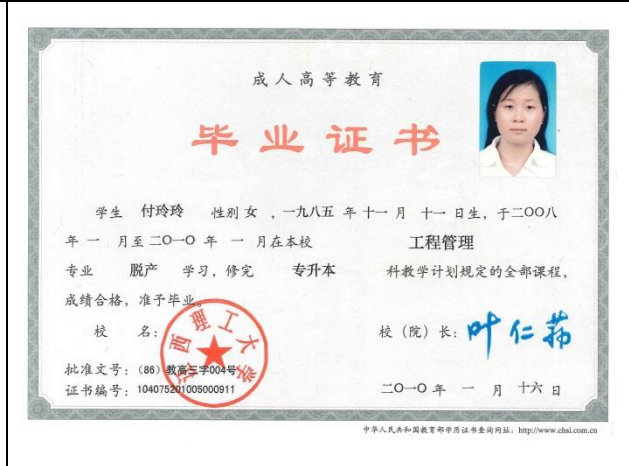 成人高等教育
毕业证书
学生 付玲玲 性别 女 ，一九八五 年 十一 月 十一 日生，于二OO八
年 一 月至 二O一O 年 一 月在本校 工程管理
专业 脱产 学习，修完 专升本 科教学计划规定的全部课程，
成绩合格，准予毕业。
校 名： 江西理工大学
校（院）长：叶仁荪
批准文号：（86）教高三字004号
证书编号：104075201005000911
二O一O 年 一 月 十六 日
中华人民共和国教育部学历证书查询网址：http://www.chsi.com.cn